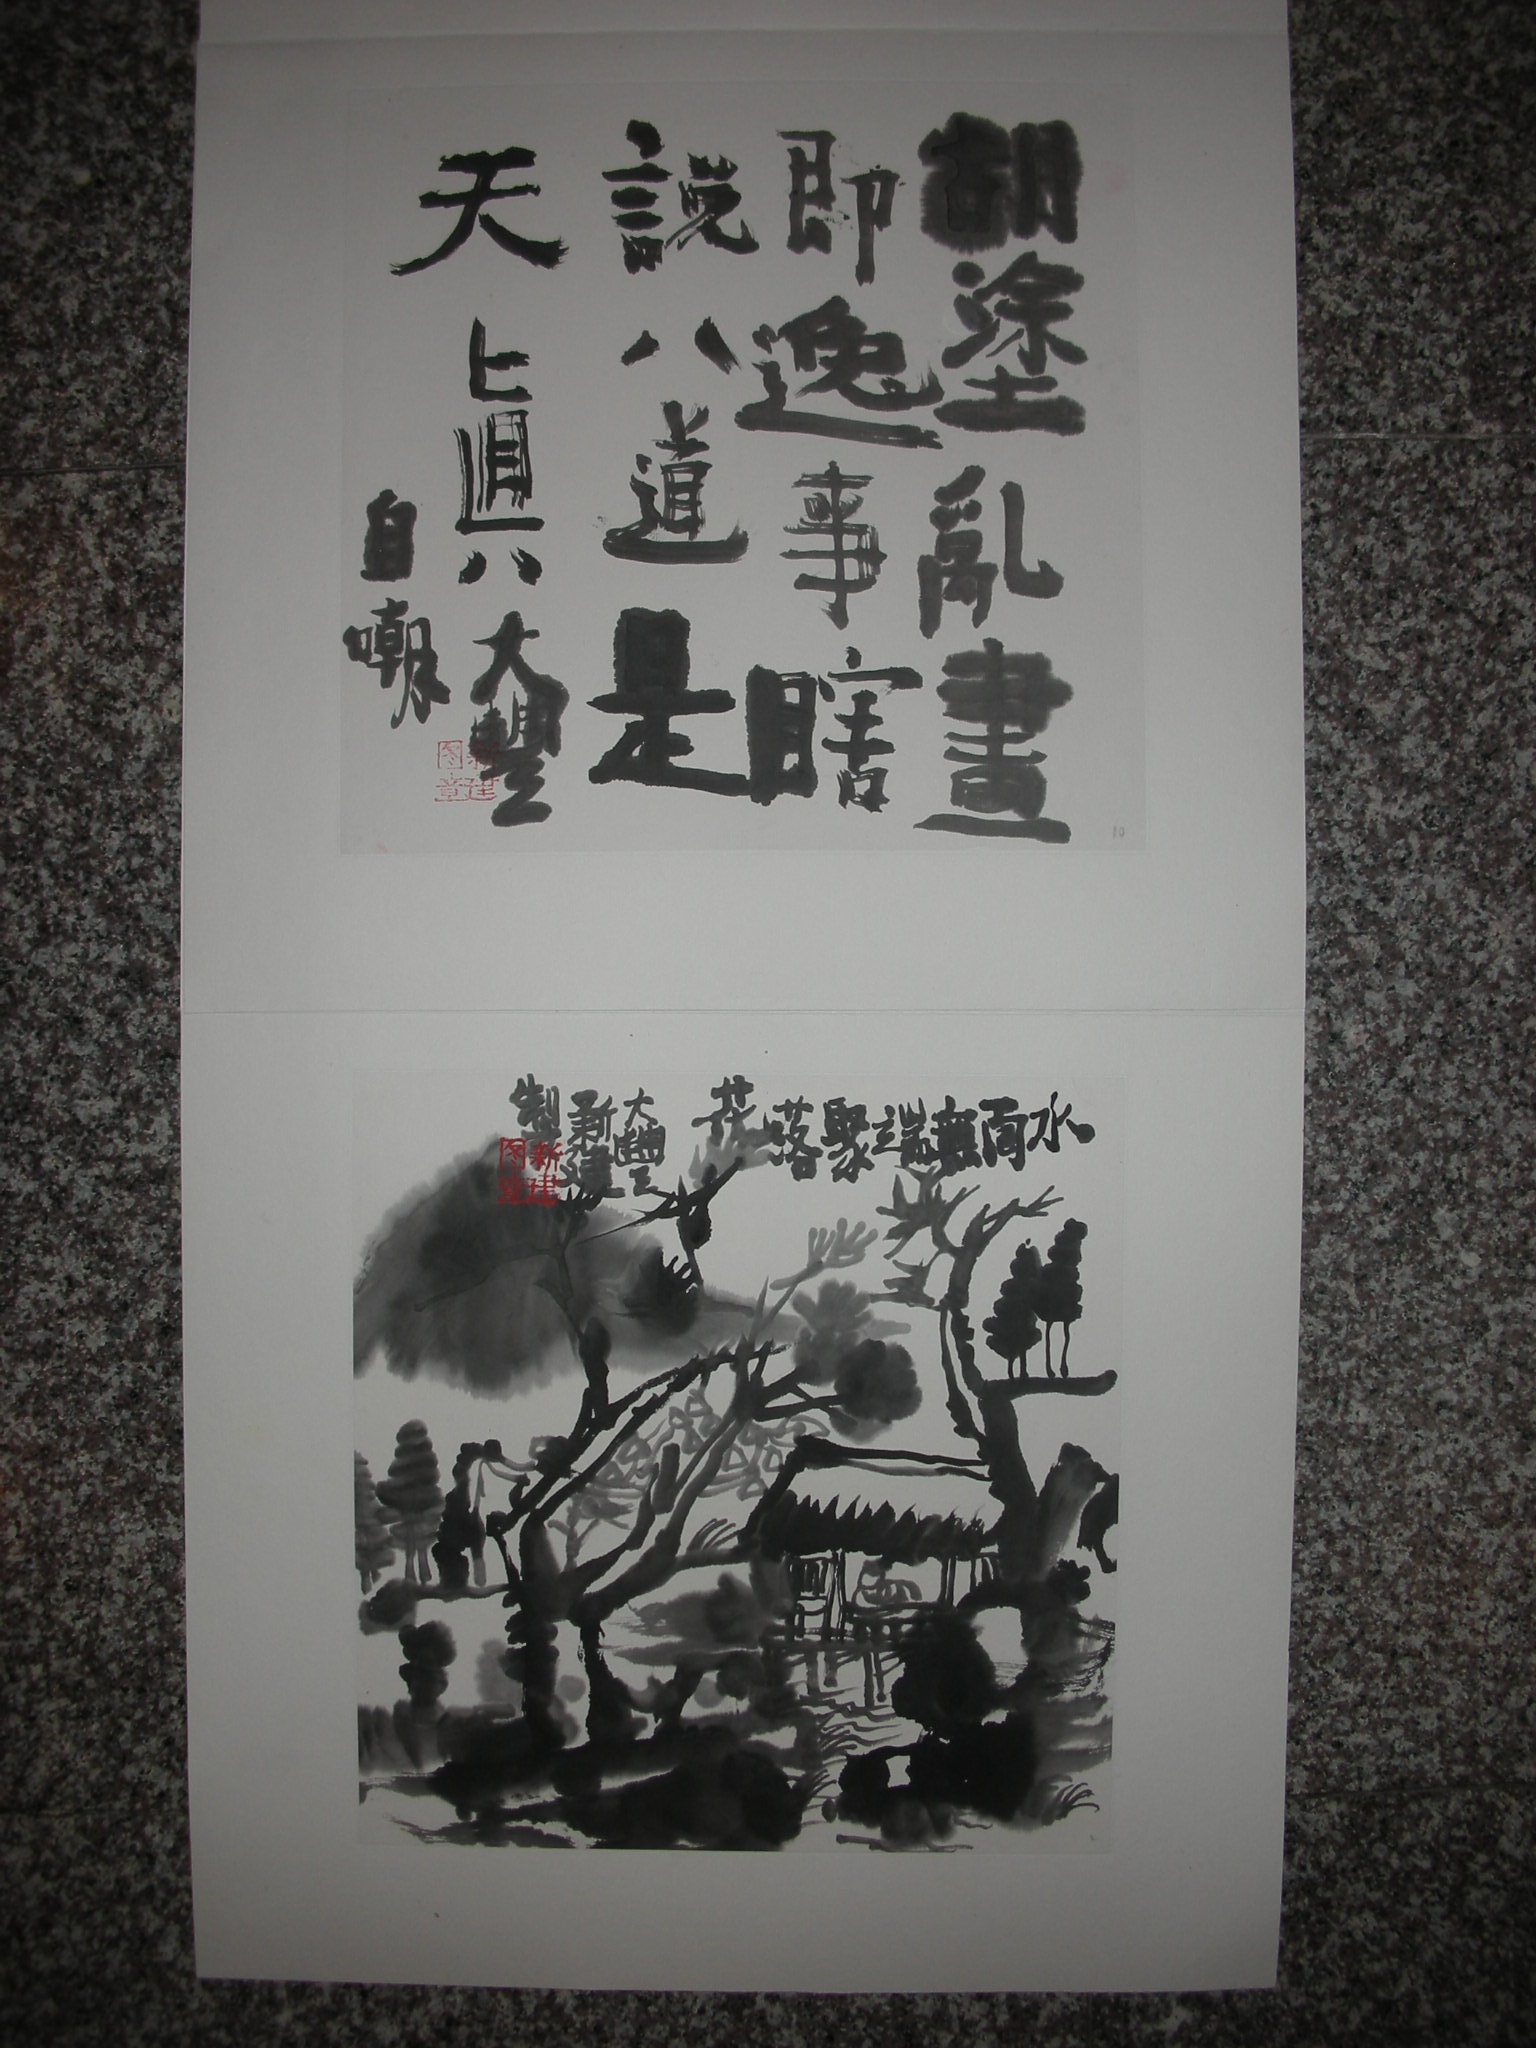 胡塗亂畫
即逸事瞎
說八道是
天真大豐
自嘲
新建
图章
10
水面無端聚落花
大豐
新建
製
新建
图章